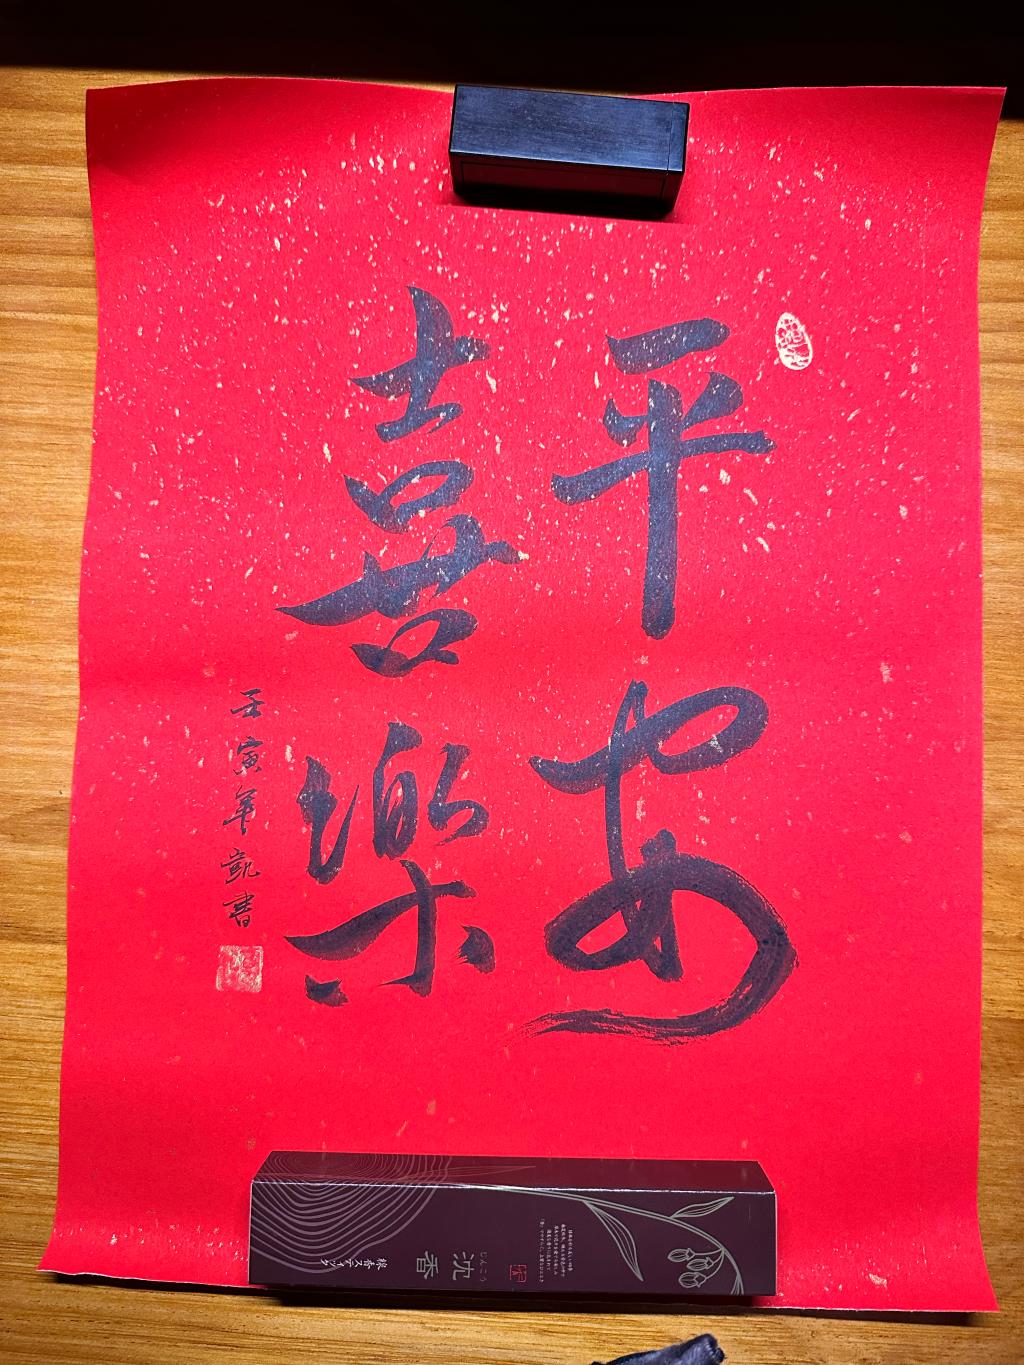 平安
喜樂
壬寅年凱書
沈香
じんこう
線香スティック